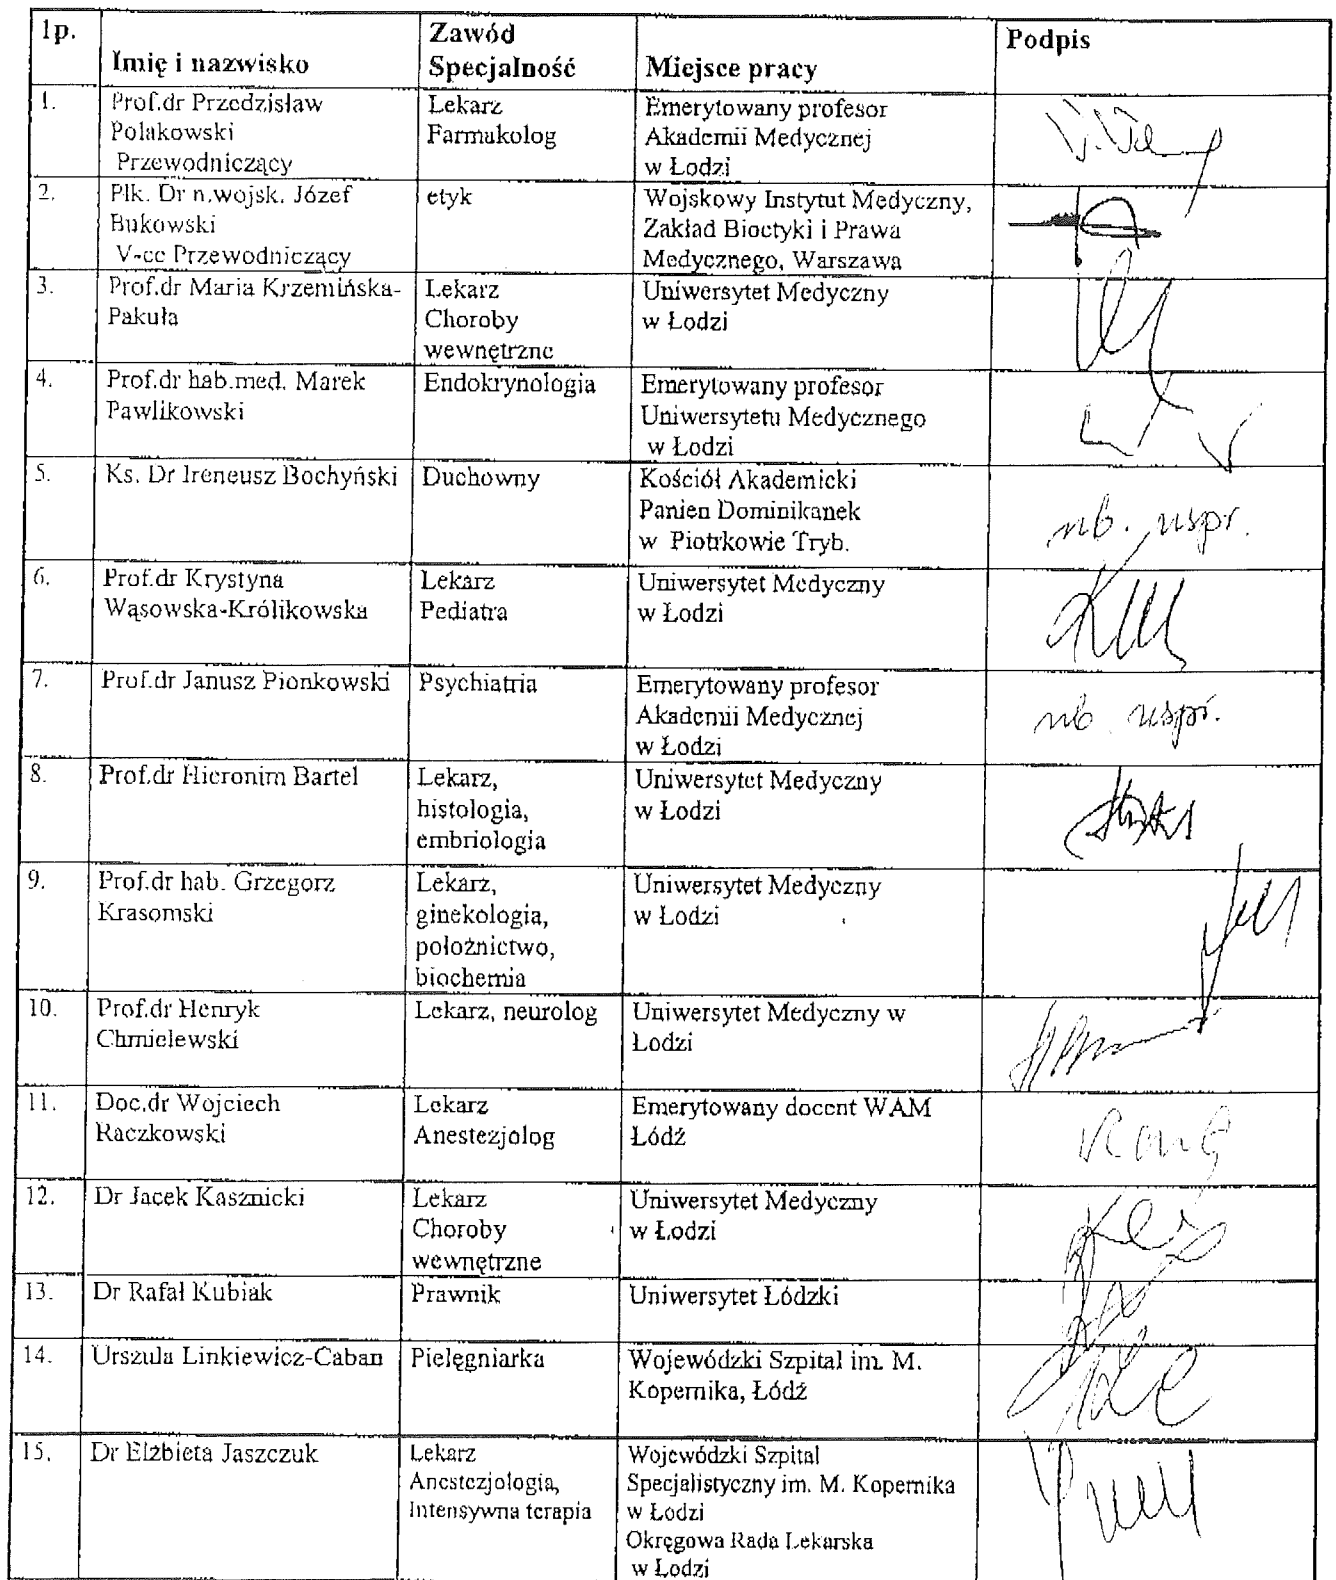 lp.
Imię i nazwisko
Zawód
Specjalność
Miejsce pracy
Podpis
1.
Prof.dr Przedzisław
Polakowski
Przewodniczący
Lekarz
Farmakolog
Emerytowany profesor
Akademii Medycznej
w Łodzi
2.
Płk. Dr n.wojsk. Józef
Bukowski
V-ce Przewodniczący
etyk
Wojskowy Instytut Medyczny,
Zakład Bioetyki i Prawa
Medycznego, Warszawa
3.
Prof.dr Maria Krzemińska-
Pakuła
Lekarz
Choroby
wewnętrzne
Uniwersytet Medyczny
w Łodzi
4.
Prof.dr hab.med. Marek
Pawlikowski
Endokrynologia
Emerytowany profesor
Uniwersytetu Medycznego
w Łodzi
5.
Ks. Dr Ireneusz Bochyński
Duchowny
Kościół Akademicki
Panien Dominikanek
w Piotrkowie Tryb.
nb. uspr.
6.
Prof.dr Krystyna
Wąsowska-Królikowska
Lekarz
Pediatra
Uniwersytet Medyczny
w Łodzi
7.
Prof.dr Janusz Pionkowski
Psychiatria
Emerytowany profesor
Akademii Medycznej
w Łodzi
nb uspr.
8.
Prof.dr Hieronim Bartel
Lekarz,
histologia,
embriologia
Uniwersytet Medyczny
w Łodzi
9.
Prof.dr hab. Grzegorz
Krasomski
Lekarz,
ginekologia,
położnictwo,
biochemia
Uniwersytet Medyczny
w Łodzi
10.
Prof.dr Henryk
Chmielewski
Lekarz, neurolog
Uniwersytet Medyczny w
Łodzi
11.
Doc.dr Wojciech
Raczkowski
Lekarz
Anestezjolog
Emerytowany docent WAM
Łódź
12.
Dr Jacek Kasznicki
Lekarz
Choroby
wewnętrzne
Uniwersytet Medyczny
w Łodzi
13.
Dr Rafał Kubiak
Prawnik
Uniwersytet Łódzki
14.
Urszula Linkiewicz-Caban
Pielęgniarka
Wojewódzki Szpital im. M.
Kopernika, Łódź
15.
Dr Elżbieta Jaszczuk
Lekarz
Anestezjologia,
Intensywna terapia
Wojewódzki Szpital
Specjalistyczny im. M. Kopernika
w Łodzi
Okręgowa Rada Lekarska
w Łodzi